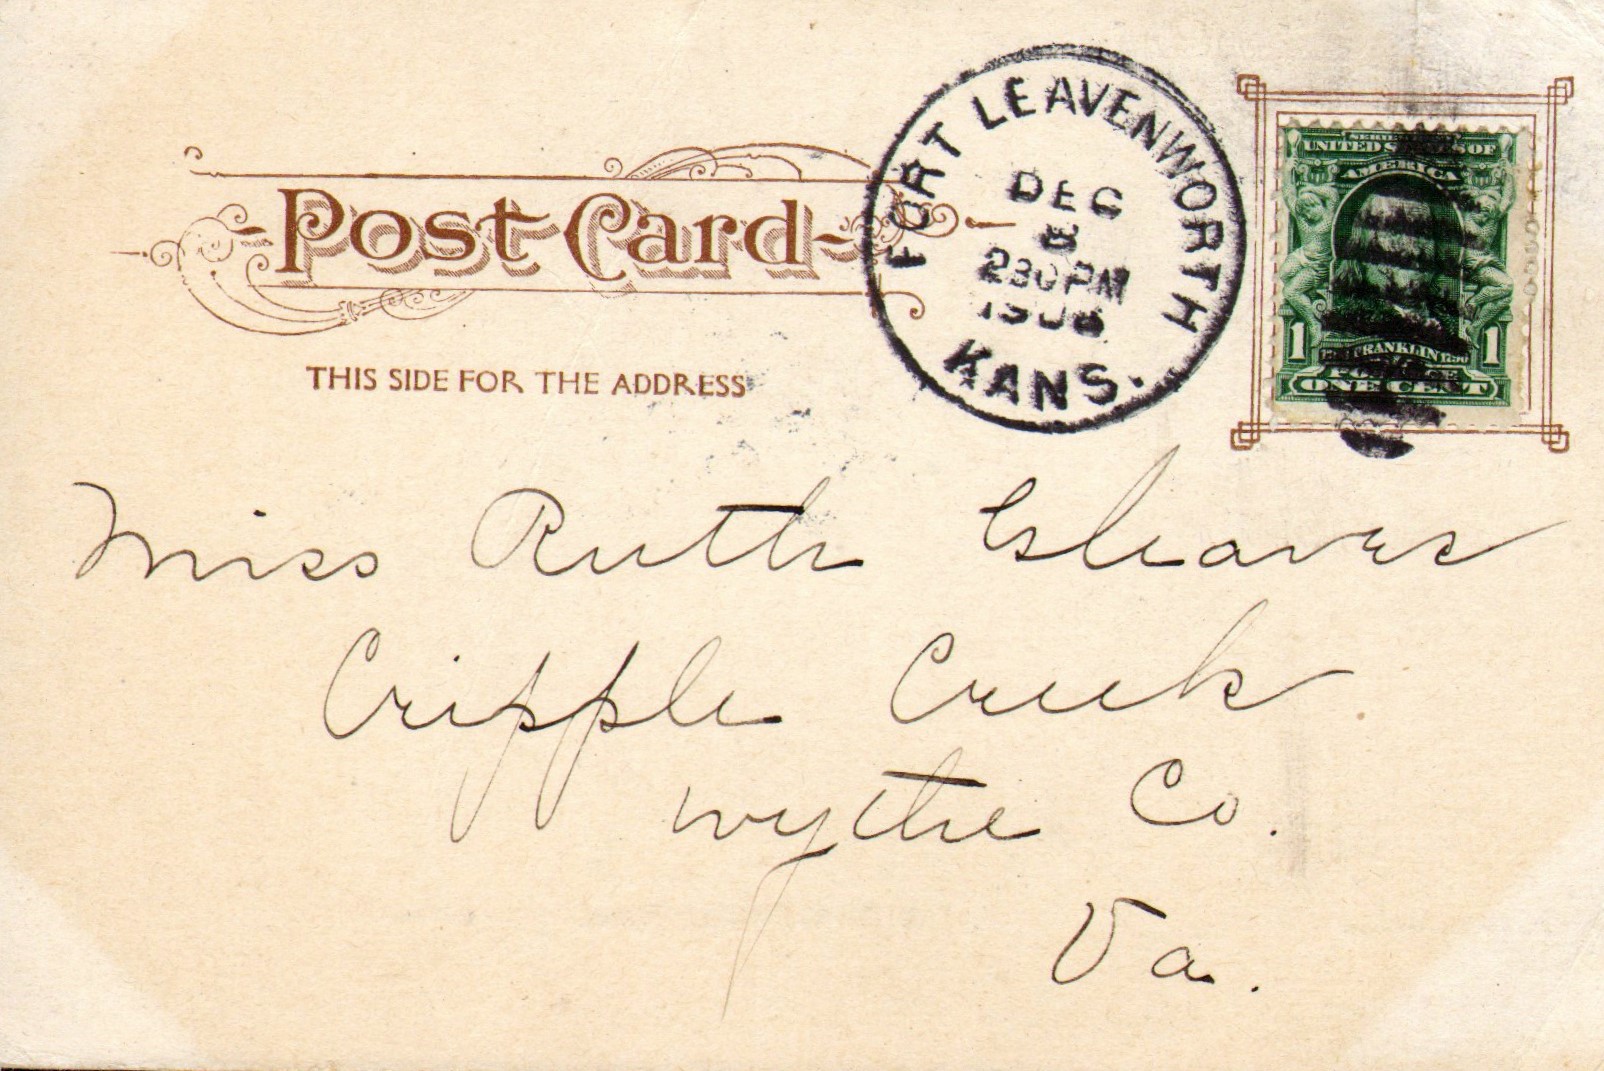 Post Card
THIS SIDE FOR THE ADDRESS
FORT LEAVENWORTH
DEC
8
230 PM
KANS.
SERIES
UNITED STATES OF
AMERICA
1 FRANKLIN 1790 1
POSTAGE
ONE CENT
Miss Ruth Gleaves
Cripple Creek
Wythe Co.
Va.